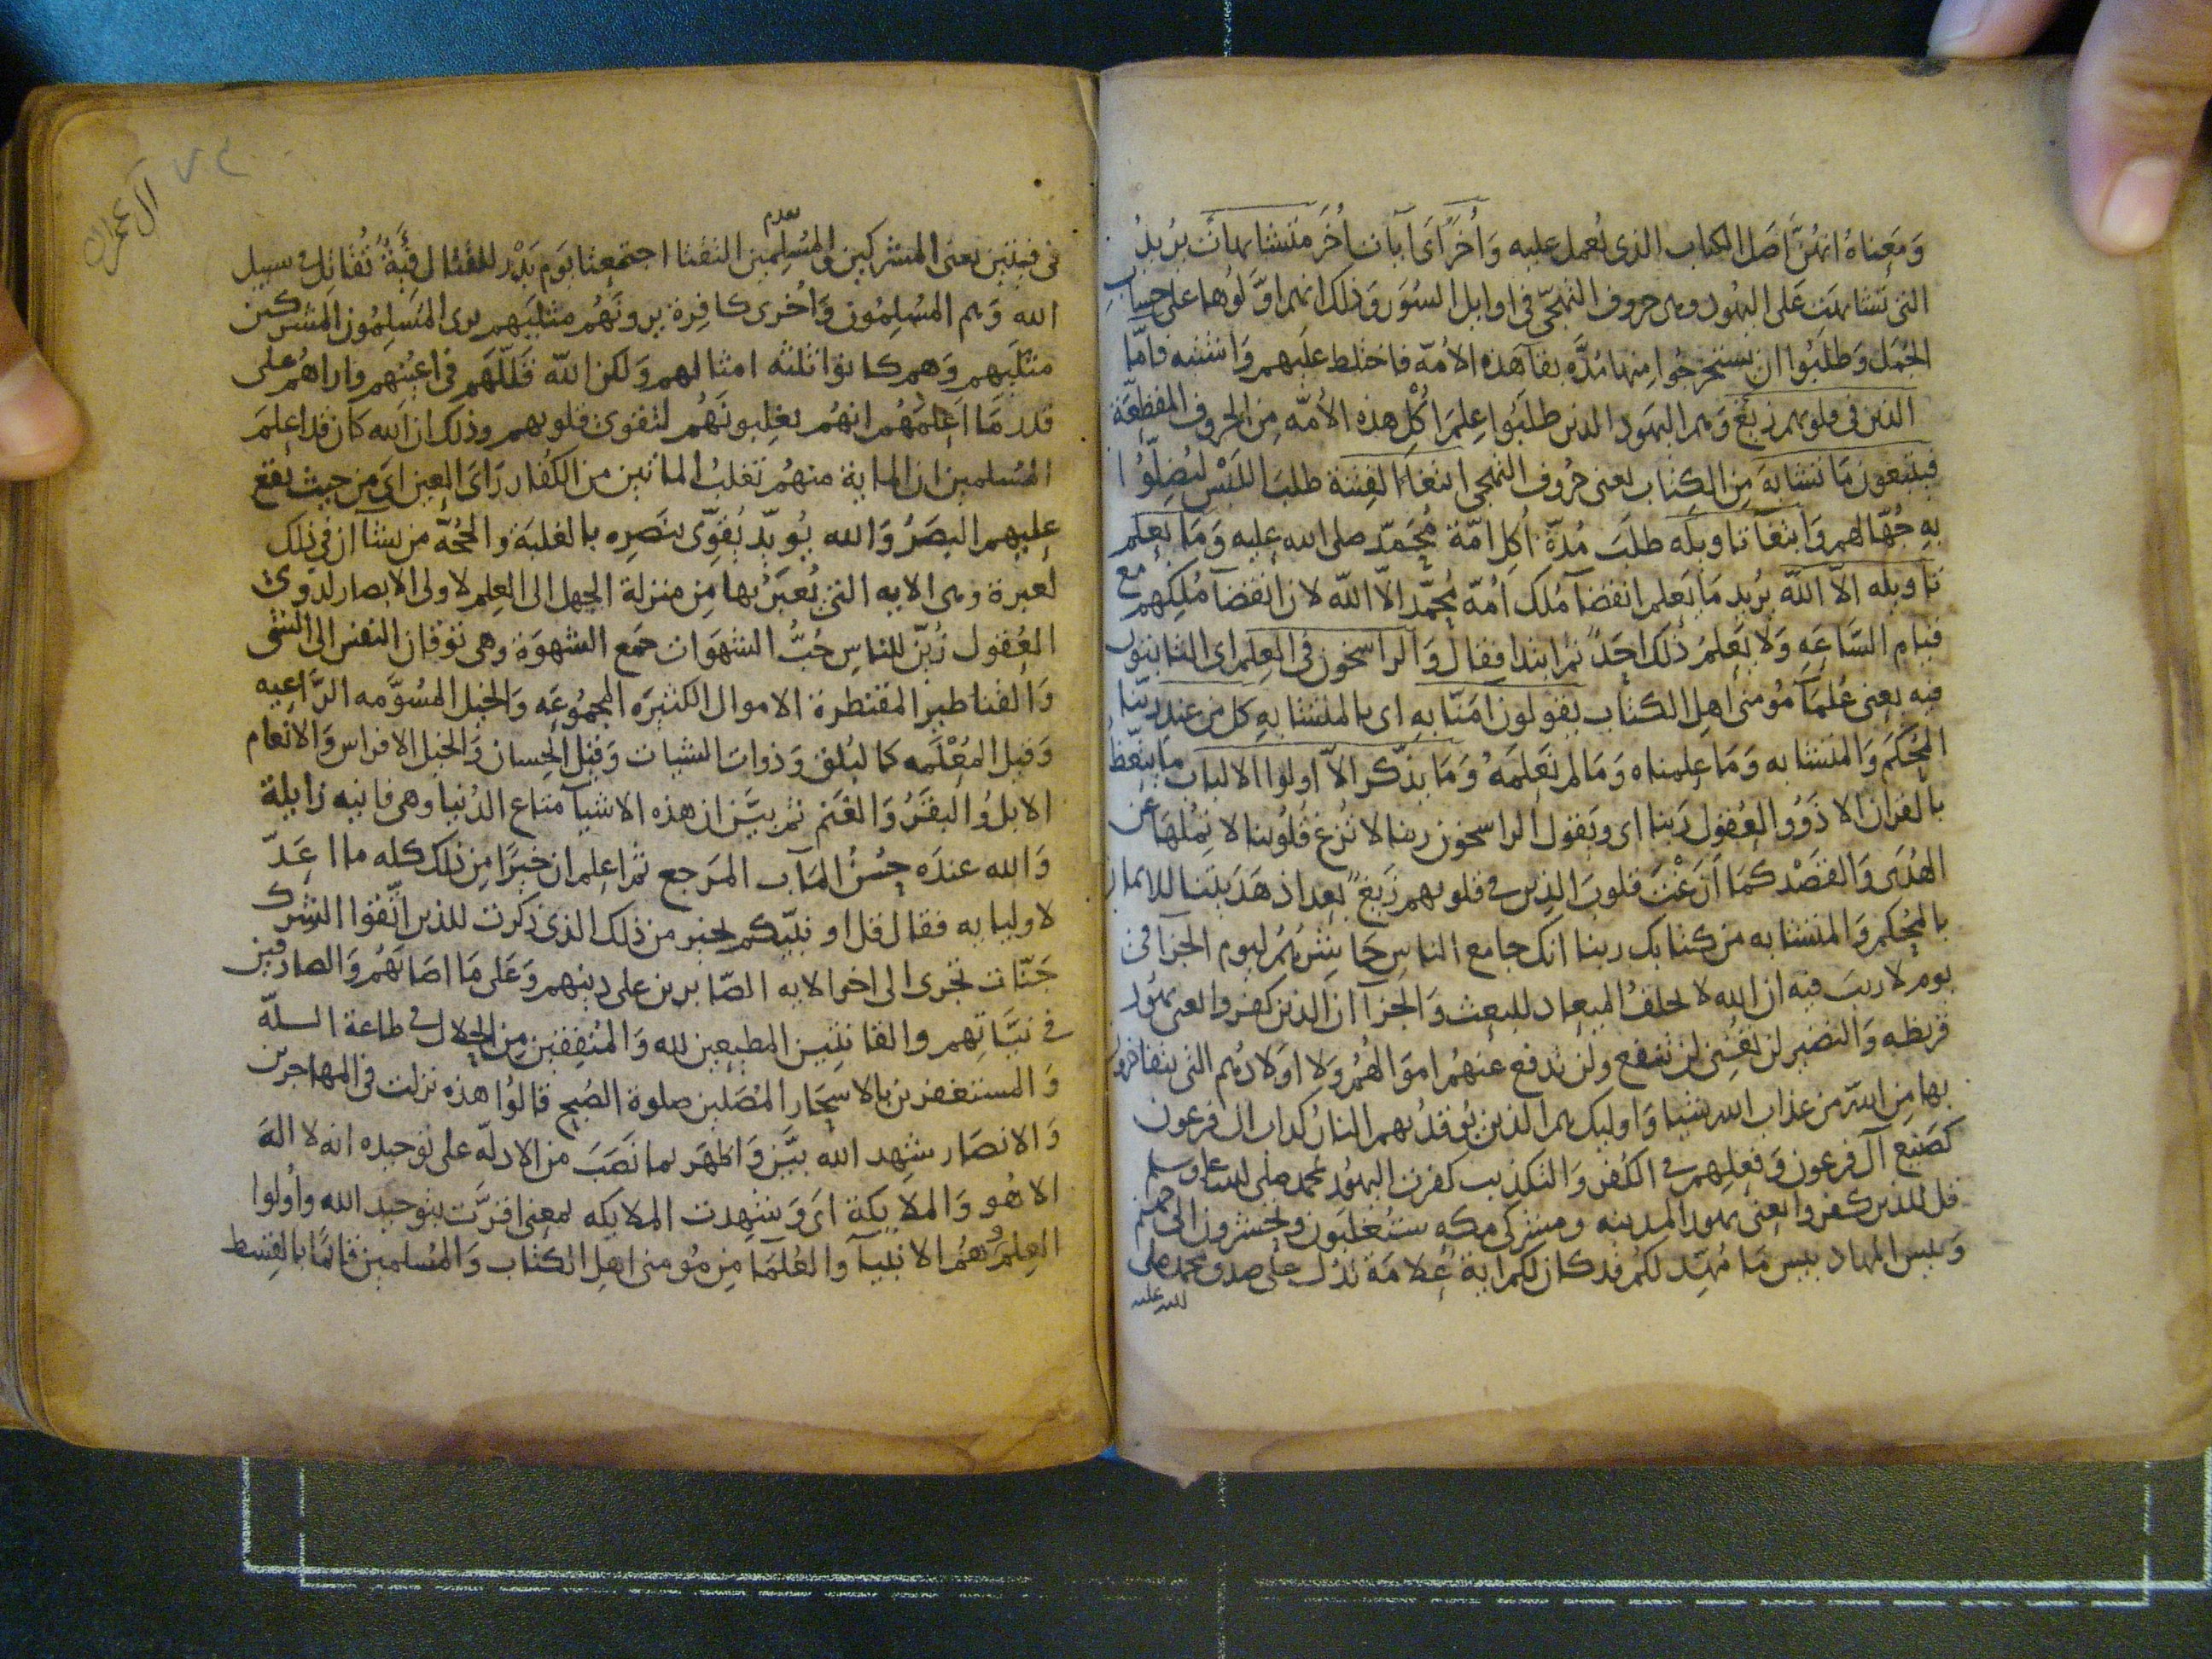 وَمَعناهُ انهُنَّ اصَل الكتاب الذى يُعمل عليه وَاُخَر اَى اٰيات اُخَر متشابهات يُريدُ
التى تشابهَت عَلى اليهُود وهى حروف التهَجّى فى اوايل السُّوَر وَذلك انهم اَوَّلوُها على حِسابِ
الجُمَل وَطلبُوا ان يستخرجُوا مِنها مُدَّة بقآ هَذه الاُمّة فاختلط عليهم وَاشتبه فاَمّا
الذين فى قلوبهم زيغ وَهم اليهَود الذين طلَبُوا عِلمَ اُكُل هذه الاُمّه مِن الحُروف المقطعَة
فيتبعُون مَا تشابَهَ مِن الكِتاب يعنى حُروف التهجى ابتغآء الفِتنة طلبَ اللَبْس ليُضِلّوُا
بهِ جُهّالهم وَابتغآء تاويله طلبَ مُدّة اُكل امّة مُحَمّد صلى الله عليه وَمَا يَعلم
تاويله الّا اللّه يُريد مَا يَعلم انقضآ مُلك اُمّة مُحَمّد الّا اللّه لان انقضآ مُلكِهم مع
قيام السَّاعَةِ وَلا يَعلمُ ذلك احَدٌ ثم ابتدا فقال وَالراسخون فى العِلم اى الثابتون
فيه يعنى عُلمآ مُومنى اهل الكتاب يقولون اٰمَنّا بهِ اى بالمتشابهِ كل مِن عند ربّنا
المُحْكَم وَالمتشابه وَمَا علِمناه وَمَا لم نَعلمهُ وَمَا يذّكر الّا اولوا الالباب مَا يتّعظ
بالقرآن الا ذَوُوا العُقول رَبنا اى ويَقول الراسخون ربنا لا تُزغ قلُوبنا لا تمُلهَا عَن
الهُدَى وَالقصْد كمَا اَزغْتَ قلوبَ الذين فى قلوبهم زَيغ بَعد اذ هَدَيتنا للايمان
بالمُحْكم وَالمتشابه من كتابك ربنا انك جامع الناسِ حَاشِرهُمْ ليوم الجزآ فى
يوم لا ريبَ فيه ان الله لا يخلفُ الميعاد للبعث وَالجزآ ان الذين كفروا يعنى يهُود
قريظه وَالنضير لن تغنى لن تنفع ولن تدفع عَنهُم اموَالهُمُ وَلا اوَلادُهم التى يتفاخرون
بها مِن اللهِ من عذاب الله شيا وَاوليك هم الذين يُوقدُ بهم النارُ كداب ال فرعون
كصَنيع آل فرعون وَفعِلِهم فى الكُفر وَالتكذيب كفرت اليهُود بمحمد صلى الله عليه وسلم
قل للذين كفروا يعنى يهود المدينه ومشركى مكه ستُغلبَون وتحشرون الى جهنم
وَبيس المهاد بيس مَا مُهِّد لكم قد كان لكم اية عَلامَة تدُل على صدق محمد صلى
الله عليه
آل عمران
٧٢
فى فيتين يعنى المشركين والمسُلمين التقتا اجتمعتا يوَم بَدْر للقتال فيَةٌ تُقاتِل فى سبيل
الله وَهم المسُلمُون وَاُخرى كافِرة يرونَهُم مثليَهم يرى المُسلمُون المشركين
مثليَهم وَهم كانوا ثلثه امثالهم وَلكن اللّه قلّلهَم فى اعيُنهم واراهُم على
قدر مَا اَعلمَهُم انهُم يغلبونَهُم لتقوى قلوبهم وذلك ان الله كان قد اعلمَ
المُسلمين ان الماية منهُم تغلبُ الماتين من الكُفار رَاىَ العين اى مِن حيث يقع
عليهم البصَرُ وَالله يُويّد يُقوِّى بنَصرِه بالغلبَة والحُجّة مَن يشآ ان فى ذلك
لعبرة وهى الايه التى يُعبَرُ بها مِن منزلة الجهل الى العِلم لاولى الابصار لذوى
العُقول زُيّن للناسِ حُبُّ الشهَوَات جمع الشهوَة وهى توَقان النفس الى الشى
وَالقناطير المقنطرة الاموال الكثيرَه المجمُوعَه وَالخيل المسُوَّمه الرَّاعيه
وَقيل المُعْلَمه كالبُلق وَذوات الشيات وَقيل الحِسان وَالخيل الافراس وَالانعام
الابلُ والبقرُ وَالغنَم ثم بيَّن ان هذه الاشيآ متاع الدُنيا وهى فانيه زايلة
وَالله عندَه حسُنُ المآب المَرجع ثم اعلم ان خيرًا مِن ذلك كله ما اعَدّ
لاوليايه فقال قل اونبّيكم بخير من ذلك الذى ذكرت للذين اتّقوا الشرك
جَنّات تجَرى الى اخر الايه الصّابرين على دينهم وَعَلى مَا اصَابَهُم وَالصادقين
فى نيّاتِهم والقانتِين المطيعِين لله وَالمُنفِقين مِن الحلال فى طاعة اللّه
وَالمستغفرين بالاسحَار المُصَلين صلوة الصُبح قالوُا هذه نزلت فى المهاجرين
وَالانصَار شهد الله بيَّن وَاظهَر بما نصَبَ من الادلّه على توحيده انه لا الهَ
الا هُو وَالملايكة اى وَشهدت الملايكه بمعنى اقرَّت بتوحيد الله واُولوا
العِلم وَهُم الانبيآ والعُلمآ مِن مُومنى اهل الكتاب وَالمسُلمين قائمًا بالقِسط